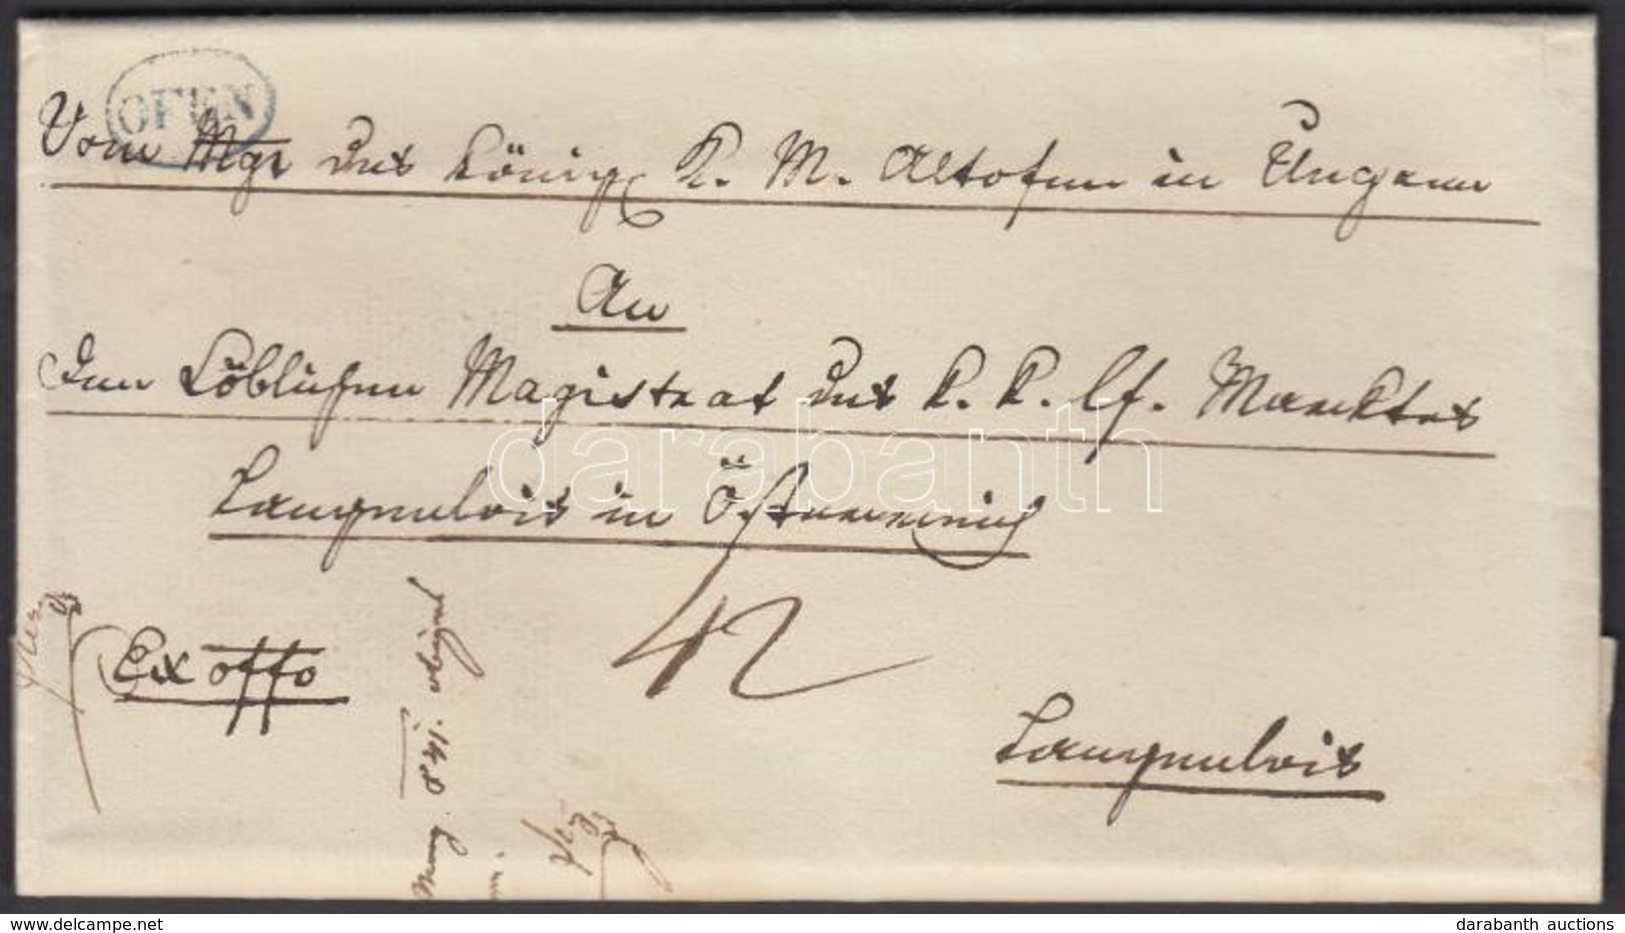 OFEN
Vom Mgr des königl K. M. Altofen in Ungarn
An
Den Löblichen Magistrat des K. K. lf. Marktes
Langenlois in Österreich
42
Ex offo
Langenlois
darabanth
darabanth auctions